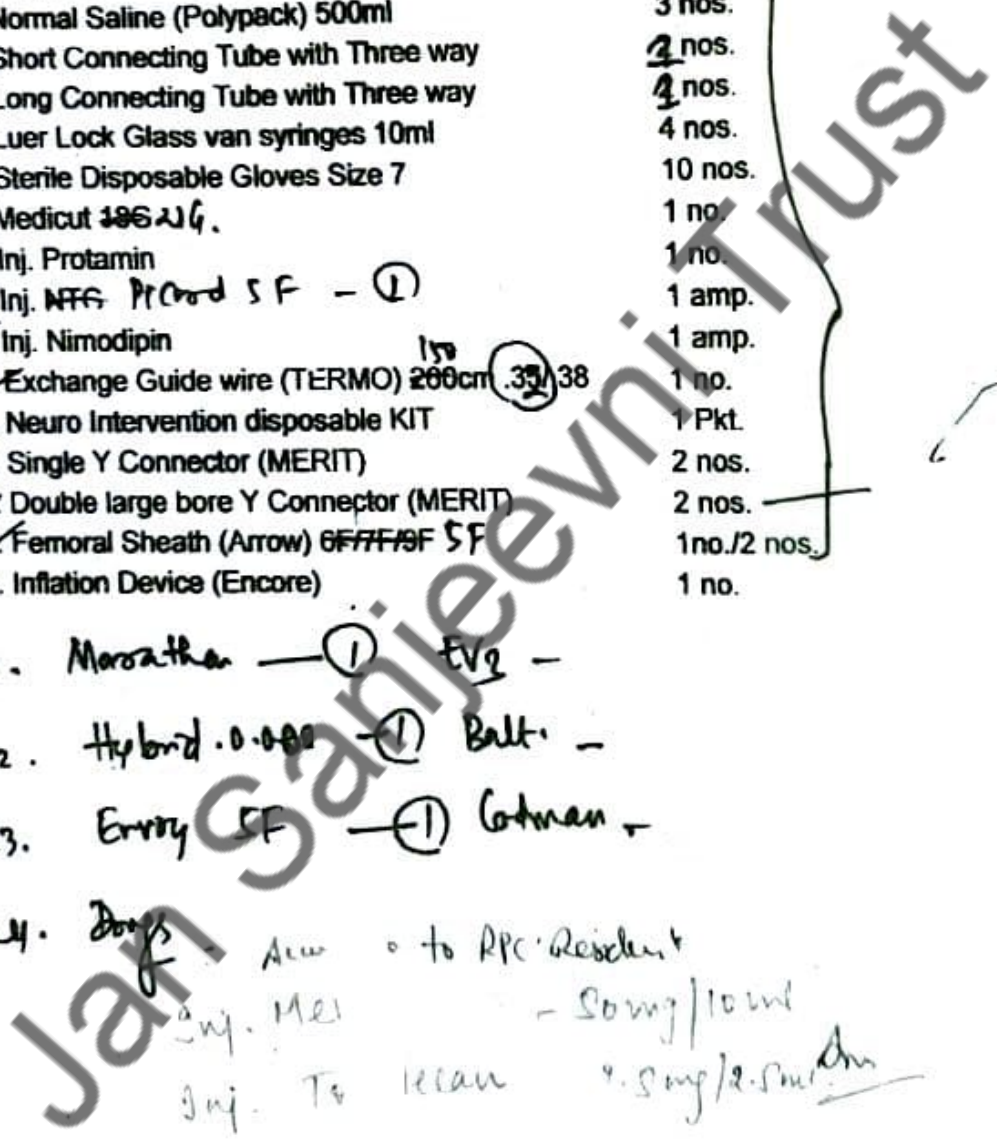 Normal Saline (Polypack) 500ml 3 nos.
Short Connecting Tube with Three way 2 nos.
Long Connecting Tube with Three way nos.
Luer Lock Glass van syringes 10ml 4 nos.
Sterile Disposable Gloves Size 7 10 nos.
Medicut 18G 21G. 1 no.
Inj. Protamin 1 no.
Inj. NTG 5F - 1 1 amp.
Inj. Nimodipin 1 amp.
150
Exchange Guide wire (TERMO) 200cm /38 1 no.
Neuro Intervention disposable KIT 1 Pkt.
Single Y Connector (MERIT) 2 nos.
Double large bore Y Connector (MERIT) 2 nos.
Femoral Sheath (Arrow) 6F/7F/9F 5F 1no./2 nos.
. Inflation Device (Encore) 1 no.
. Marathon — 1 EV3 -
2. Hybrid 1 Balt. -
3. Envoy 5F — 1 Codman -
4. Drugs
to RPC Resident
Inj. Mel - 50mg/10ml
Inj. To tecan mg/2.5ml
Jan Sanjeevni Trust